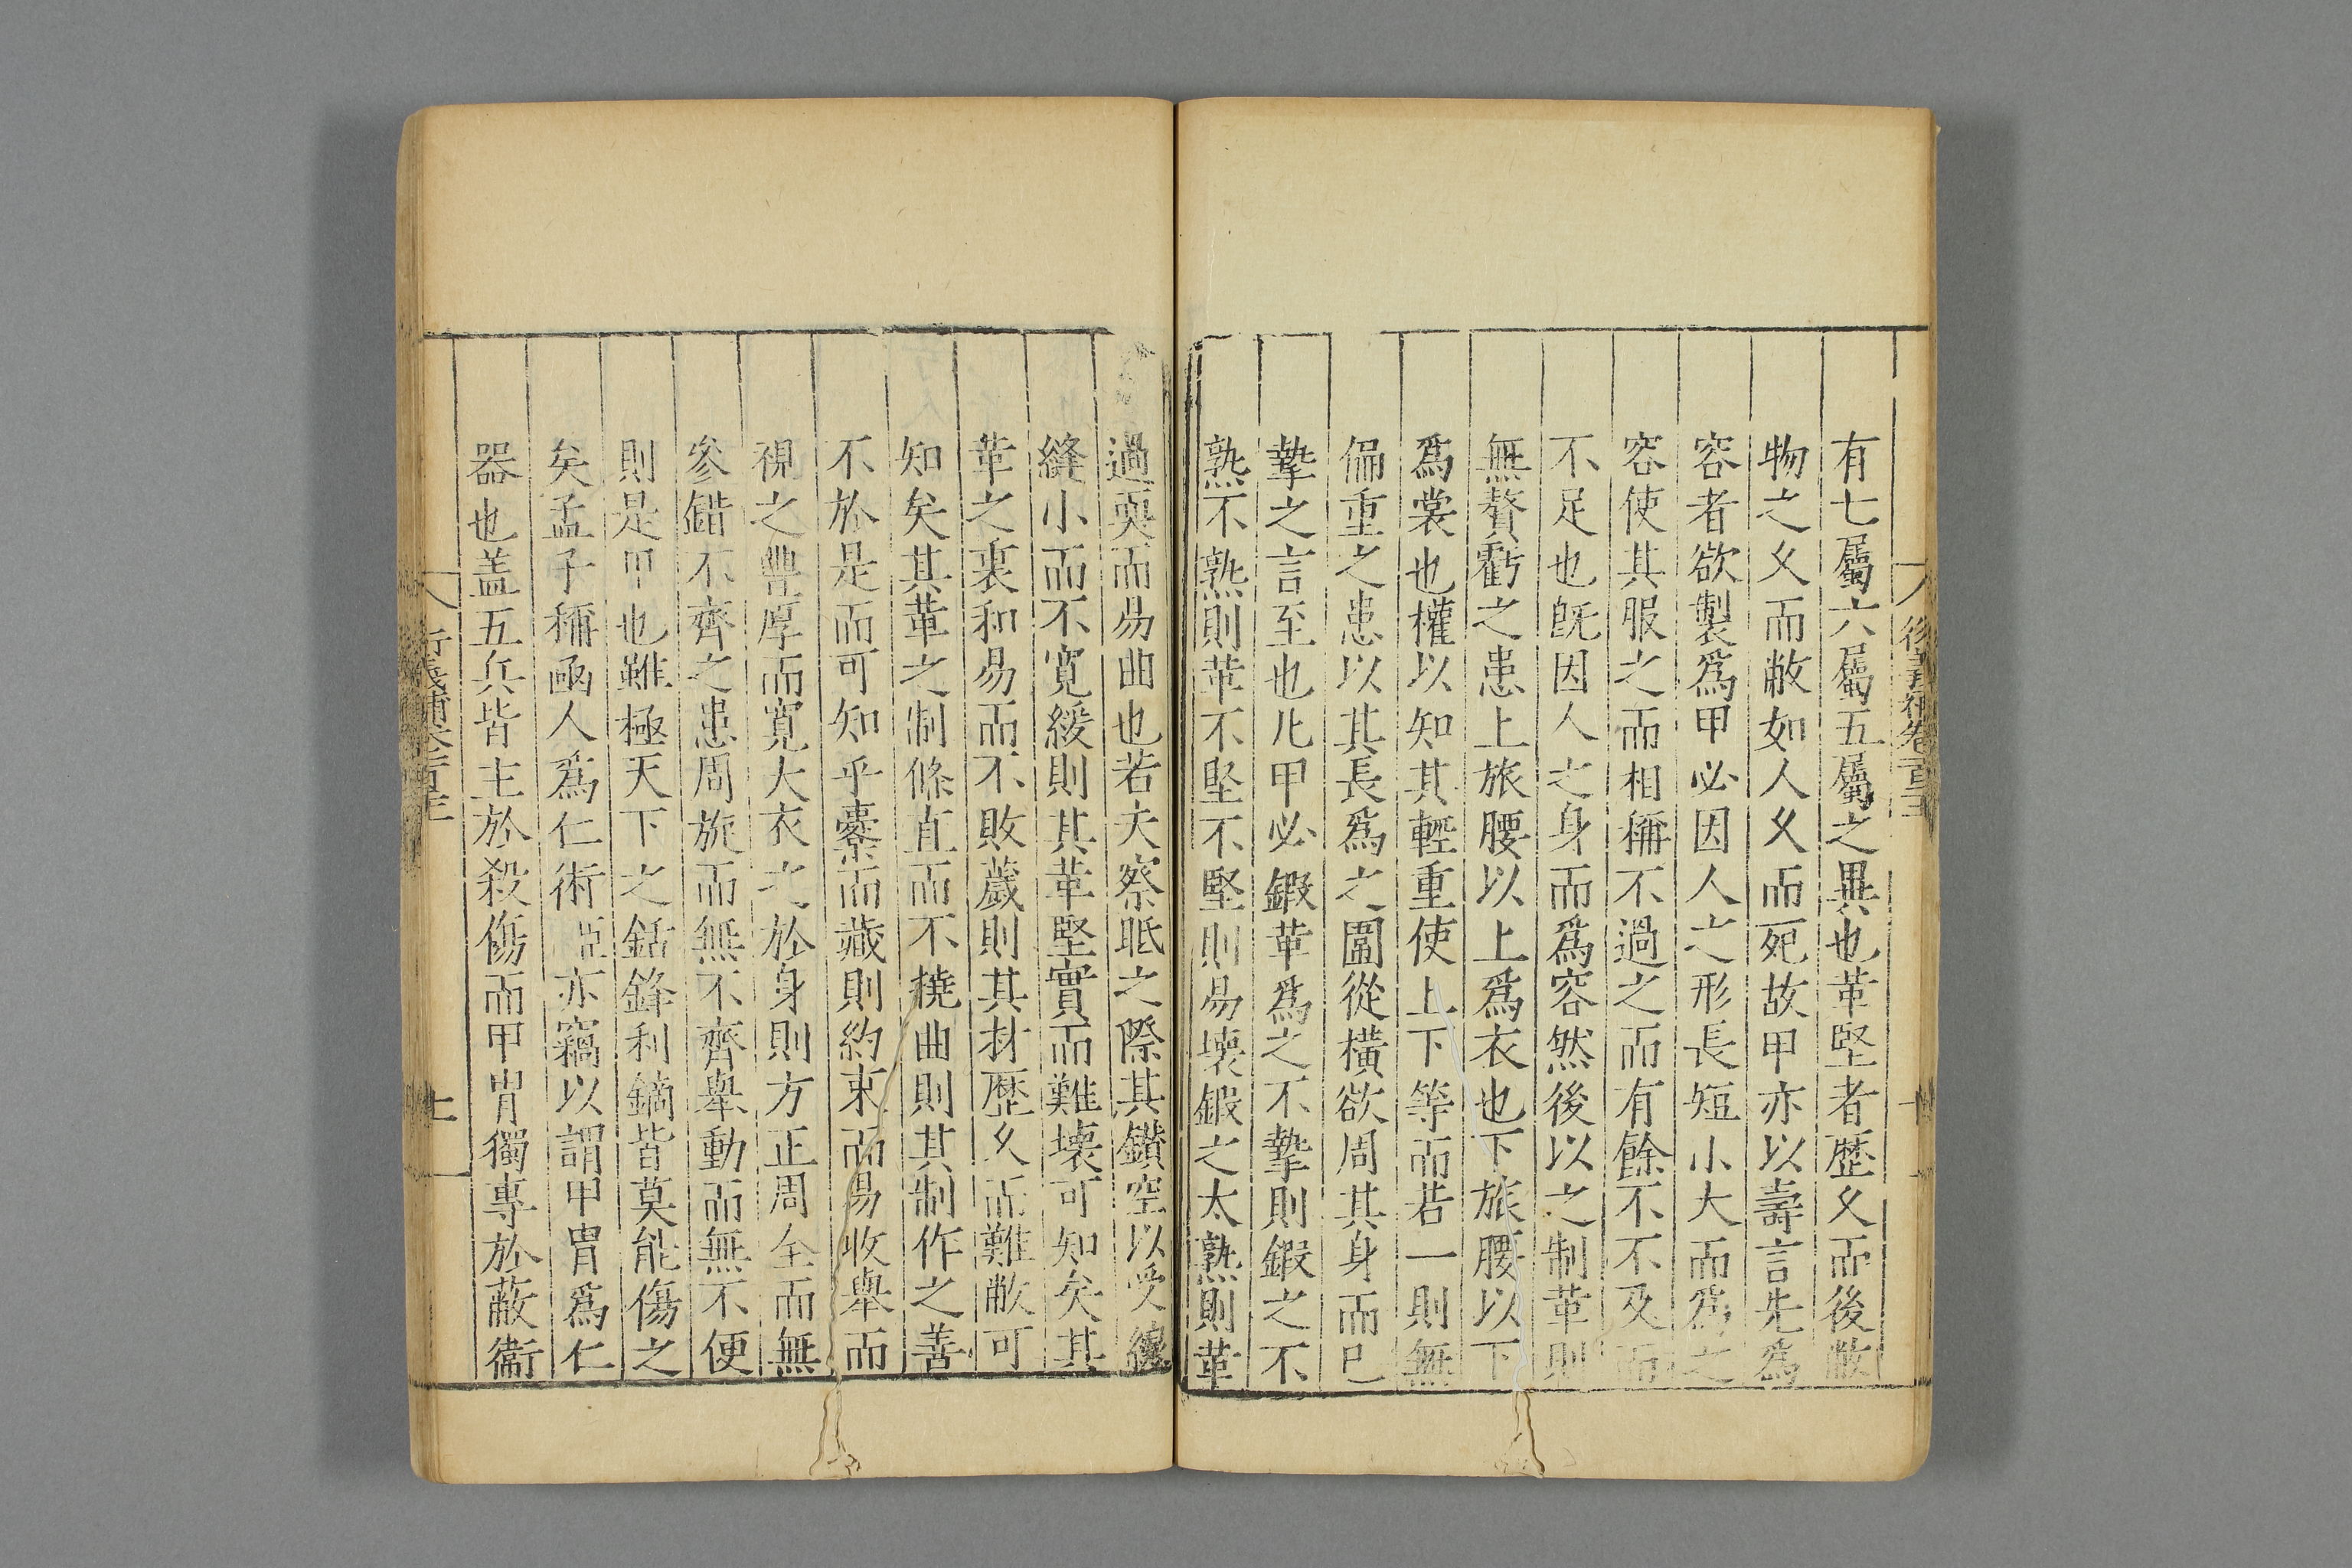 有七屬六屬五屬之異也革堅者歷久而後敝
物之久而敝如人久而死故甲亦以壽言先為
容者欲製爲甲必因人之形長短小大而爲之
容使其服之而相稱不過之而有餘不不及而
不足也旣因人之身而爲容然後以之制革則
無贅虧之患上旅腰以上爲衣也下旅腰以下
爲裳也權以知其輕重使上下等而若一則無
偏重之患以其長爲之圍從橫欲周其身而已
摯之言至也凡甲必鍛革爲之不摯則鍛之不
熟不熟則革不堅不堅則易壞鍛之太熟則革
過耎而易曲也若夫察眡之際其鑽空以受
縫小而不寬緩則其革堅實而難壞可知矣其
革之裏和易而不敗薉則其材歷久而難敝可
知矣其革之制條直而不撓曲則其制作之善
不於是而可知乎櫜而藏則約束而易收舉而
視之豐厚而寬大衣之於身則方正周全而無
參錯不齊之患周旋而無不齊舉動而無不便
則是甲也雖極天下之銛鋒利鏑皆莫能傷之
矣孟子稱函人爲仁術臣亦竊以謂甲冑爲仁
器也盖五兵皆主於殺傷而甲冑獨專於蔽衞